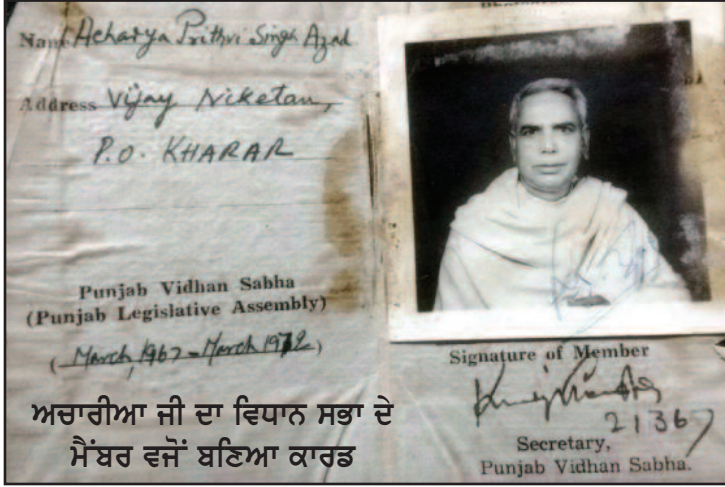 Name Acharya Prithvi Singh Azad
Address Vijay Niketan,
P.O. KHARAR
Punjab Vidhan Sabha
(Punjab Legislative Assembly)
(March, 1967 - March 1972)
ਅਚਾਰੀਆ ਜੀ ਦਾ ਵਿਧਾਨ ਸਭਾ ਦੇ
ਮੈਂਬਰ ਵਜੋਂ ਬਣਿਆ ਕਾਰਡ
Signature of Member
21367
Secretary,
Punjab Vidhan Sabha.